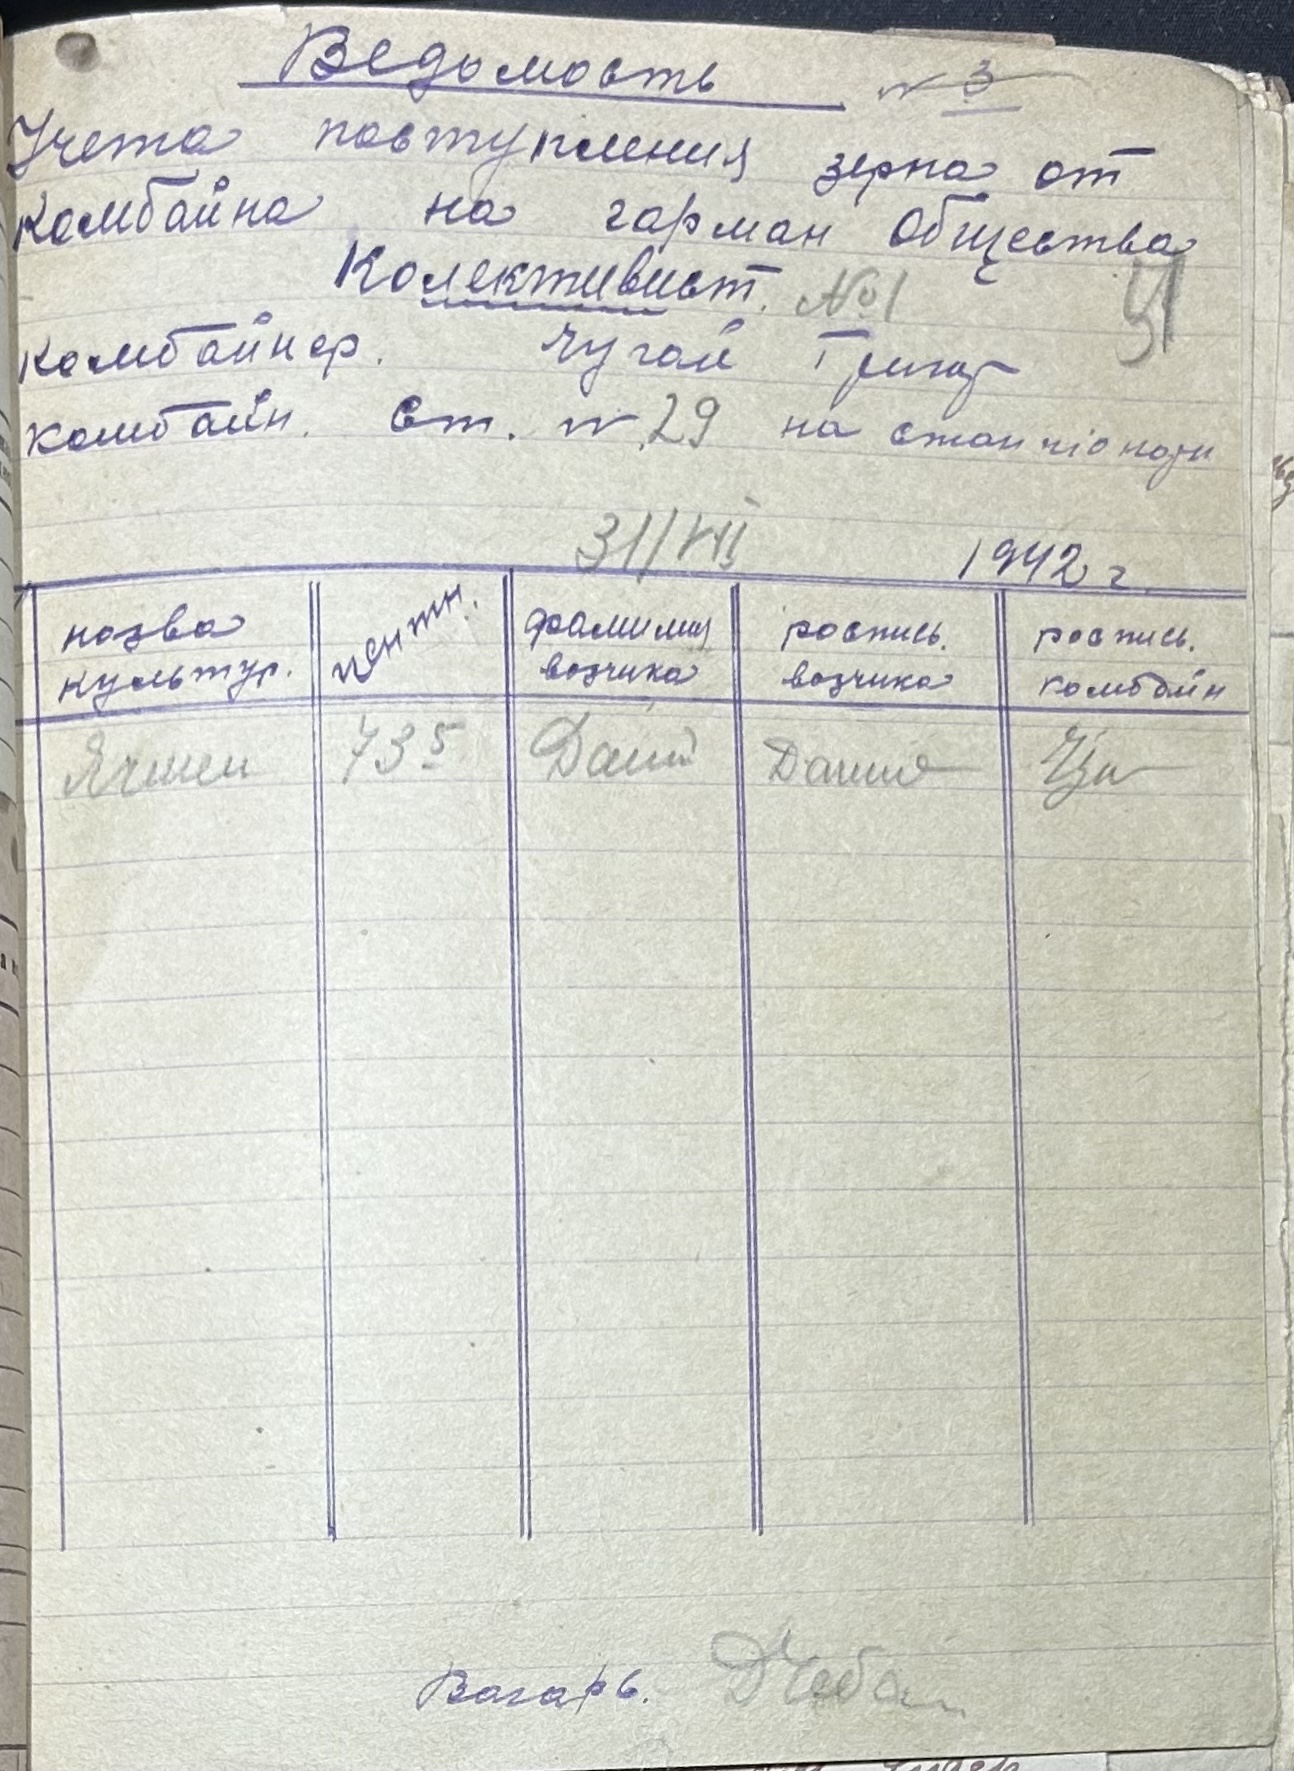 Ведомость № 3
Учета поступления зерна от
комбайна на гарман Общества
Колективист. №1
51
комбайнер. Чугай Григор
комбайн. Ст. № 29 на стаціонари
31/VII 1942 г.
назва культур. центн. фамилия возчика роспись. возчика роспись. комбайн
Ячмен 735
Вагарь. Чебан